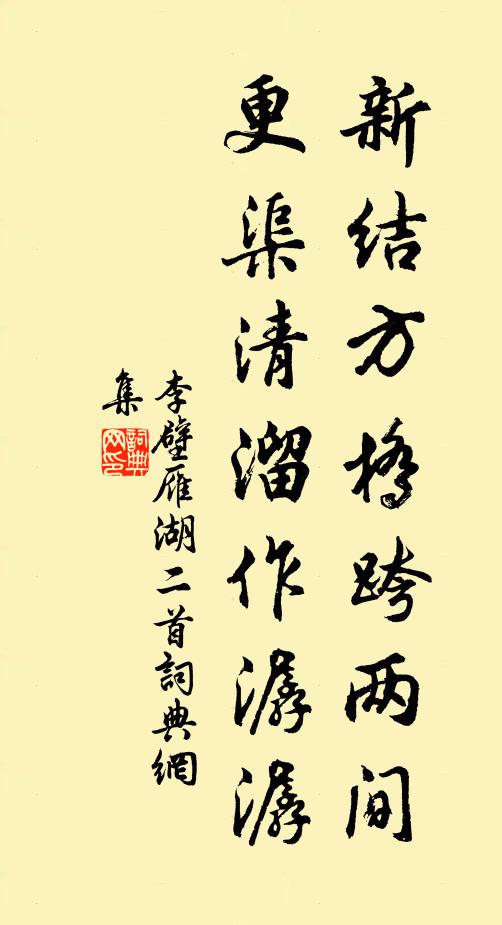 新结方桥跨两间
更渠清溜作潺潺
李壁雁湖二首詞典網
集
詞典
网印